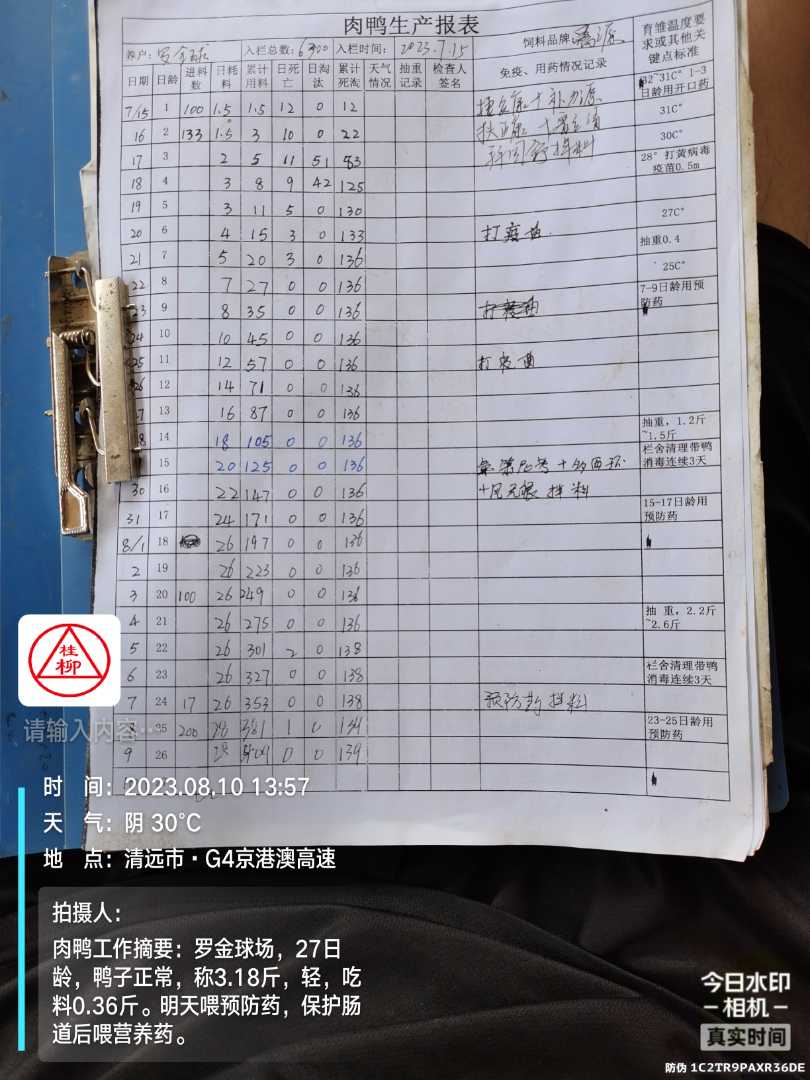 肉鸭生产报表
养户: 罗金球 入栏总数: 6300 入栏时间: 2023.7.15 饲料品牌: 育雏温度要求或其他关键点标准
日期 日龄 进料数 日耗料 累计用料 日死亡 日淘汰 累计死淘 天气情况 抽重记录 检查人签名 免疫、用药情况记录
7/15 1 100 1.5 1.5 12 0 12 32~31C° 1-3日龄用开口药
16 2 133 1.5 3 10 0 22 31C°
17 3 2 5 11 51 83 拌料 30C°
18 4 3 8 9 42 125 28° 打黄病毒疫苗0.5m
19 5 3 11 5 0 130
20 6 4 15 3 0 133 打疫苗. 27C°
21 7 5 20 3 0 136 抽重0.4
22 8 7 27 0 0 136 25C°
23 9 8 35 0 0 136 7-9日龄用预防药
24 10 10 45 0 0 136
25 11 12 57 0 0 136 打疫苗
26 12 14 71 0 0 136
7 13 16 87 0 0 136
8 14 18 105 0 0 136 抽重，1.2斤~1.5斤
15 20 125 0 0 136 栏舍清理带鸭消毒连续3天
30 16 22 147 0 0 136 拌料
31 17 24 171 0 0 136 15-17日龄用预防药
8/1 18 26 197 0 0 136
2 19 26 223 0 0 136
3 20 100 26 249 0 0 136
4 21 26 275 0 0 136 抽重，2.2斤~2.6斤
5 22 26 301 2 0 138
6 23 26 327 0 0 138 栏舍清理带鸭消毒连续3天
7 24 17 26 353 0 0 138 预防药拌料
8 25 200 1 0 23-25日龄用预防药
9 26 0 0 139
桂柳
请输入内容…
时 间: 2023.08.10 13:57
天 气: 阴 30℃
地 点: 清远市·G4京港澳高速
拍摄人:
肉鸭工作摘要: 罗金球场，27日
龄，鸭子正常，称3.18斤，轻，吃
料0.36斤。明天喂预防药，保护肠
道后喂营养药。
今日水印
-相机-
真实时间
防伪 1C2TR9PAXR36DE